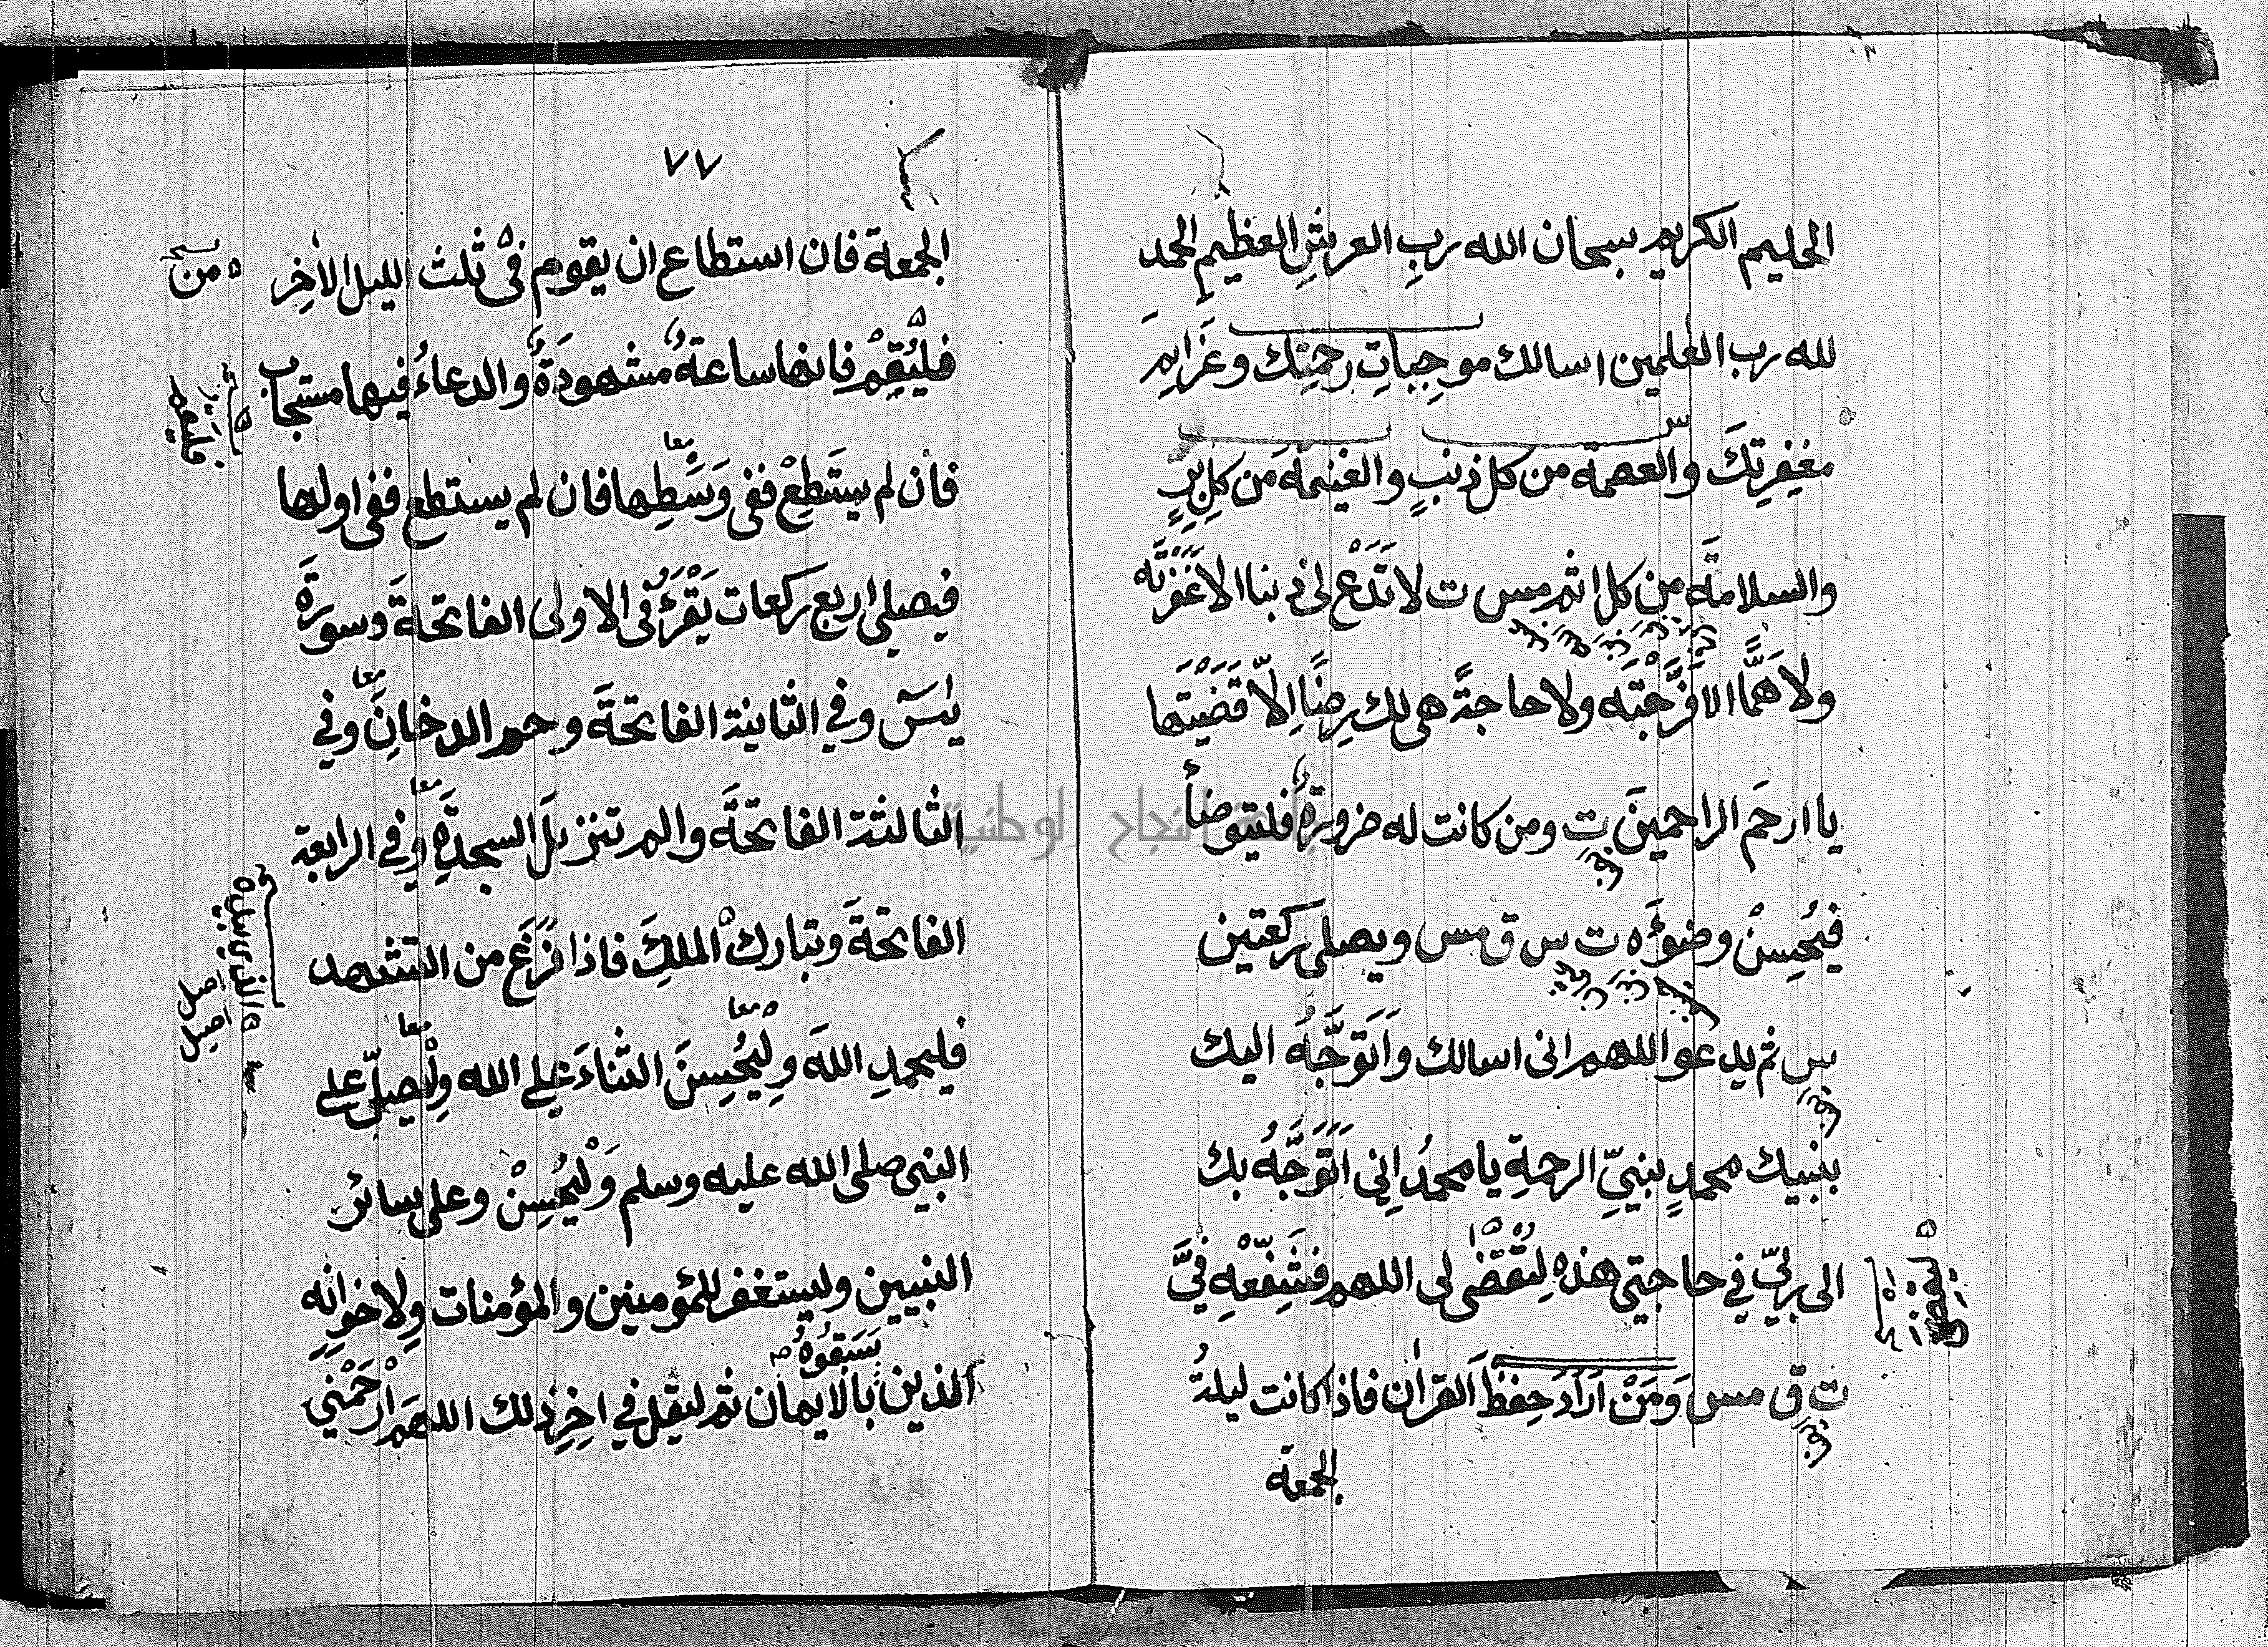 الحليم الكريم سبحان الله ربِ العرشِ العظيمِ الحمد
لله رب العٰلمين اسالك موجِباتِ رحمتِك وعَزايمَ
مغفِرتِكَ والعصمة من كل ذنبٍ والغنيمةَ من كلِ بِرٍ
والسلامةَ من كل اثم مس ت لا تَدَعْ لى ذنبا الا غَفَرْتَه
ولا هَمًّا الا فَرَّجْتَه ولا حاجةً هى لك رِضًا اِلاّ قَضَيْتَها
يا ارحَم الراحمينَ ت ومن كانت له ضرورةٌ فليتوضأ
فيُحسِنْ وضوءَه ت س ق مس ويصلى ركعتين
س ثم يدعو اللهم انى اسالك واَتَوَجَّهُ اليك
بنبيك محمدٍ نبيِّ الرحمةِ يا محمدُ اِنى اَتَوَجَّهُ بك
الى ربِّي في حاجتي هذه لِتُقْضٰى لى اللهم فشَفِّعْهِ فيَّ
لتقضى
ت ق مس وَمَنْ اَرَادَ حِفظَ القرانِ فاذا كانت ليلةُ
الجمعة
٧٧
الجمعة فان استطاع ان يقوم فى ثلث الليل الاٰخِر
من
فليُقِمْ فانها ساعةٌ مشهودَةٌ والدعاءُ فيها مستجاب
فليقم
فان لم يستَطِعْ ففى وَسَطِها فان لم يستطع ففى اولها
معا
فيصلى اربع ركعات يَقْرَؤُ فى الاولى الفاتحةَ وسورةَ
يٰسٓ وفي الثانية الفاتحةَ وحم الدخانِ وفي
معا
الثالثة الفاتحةَ والم تنزيلَ السجدةِ وفي الرابعة
معا
الفاتحةَ وتبارك الملكِ فاذا فَرَغَ من التشهد
فليحمدِ اللهَ وليُحسِنَ الثناءَ على الله ولْيُصلِّ على
معا
معا
النبى صلى الله عليه وسلم وَلْيُحسِنْ وعلى سائر
النبيين وليستغفر للمؤمنين والمؤمنات ولاخوانِه
الذين سَبَقُوهُ بالايمان ثم ليقل في اخِرِ ذلك اللهم ارْحَمْنِي